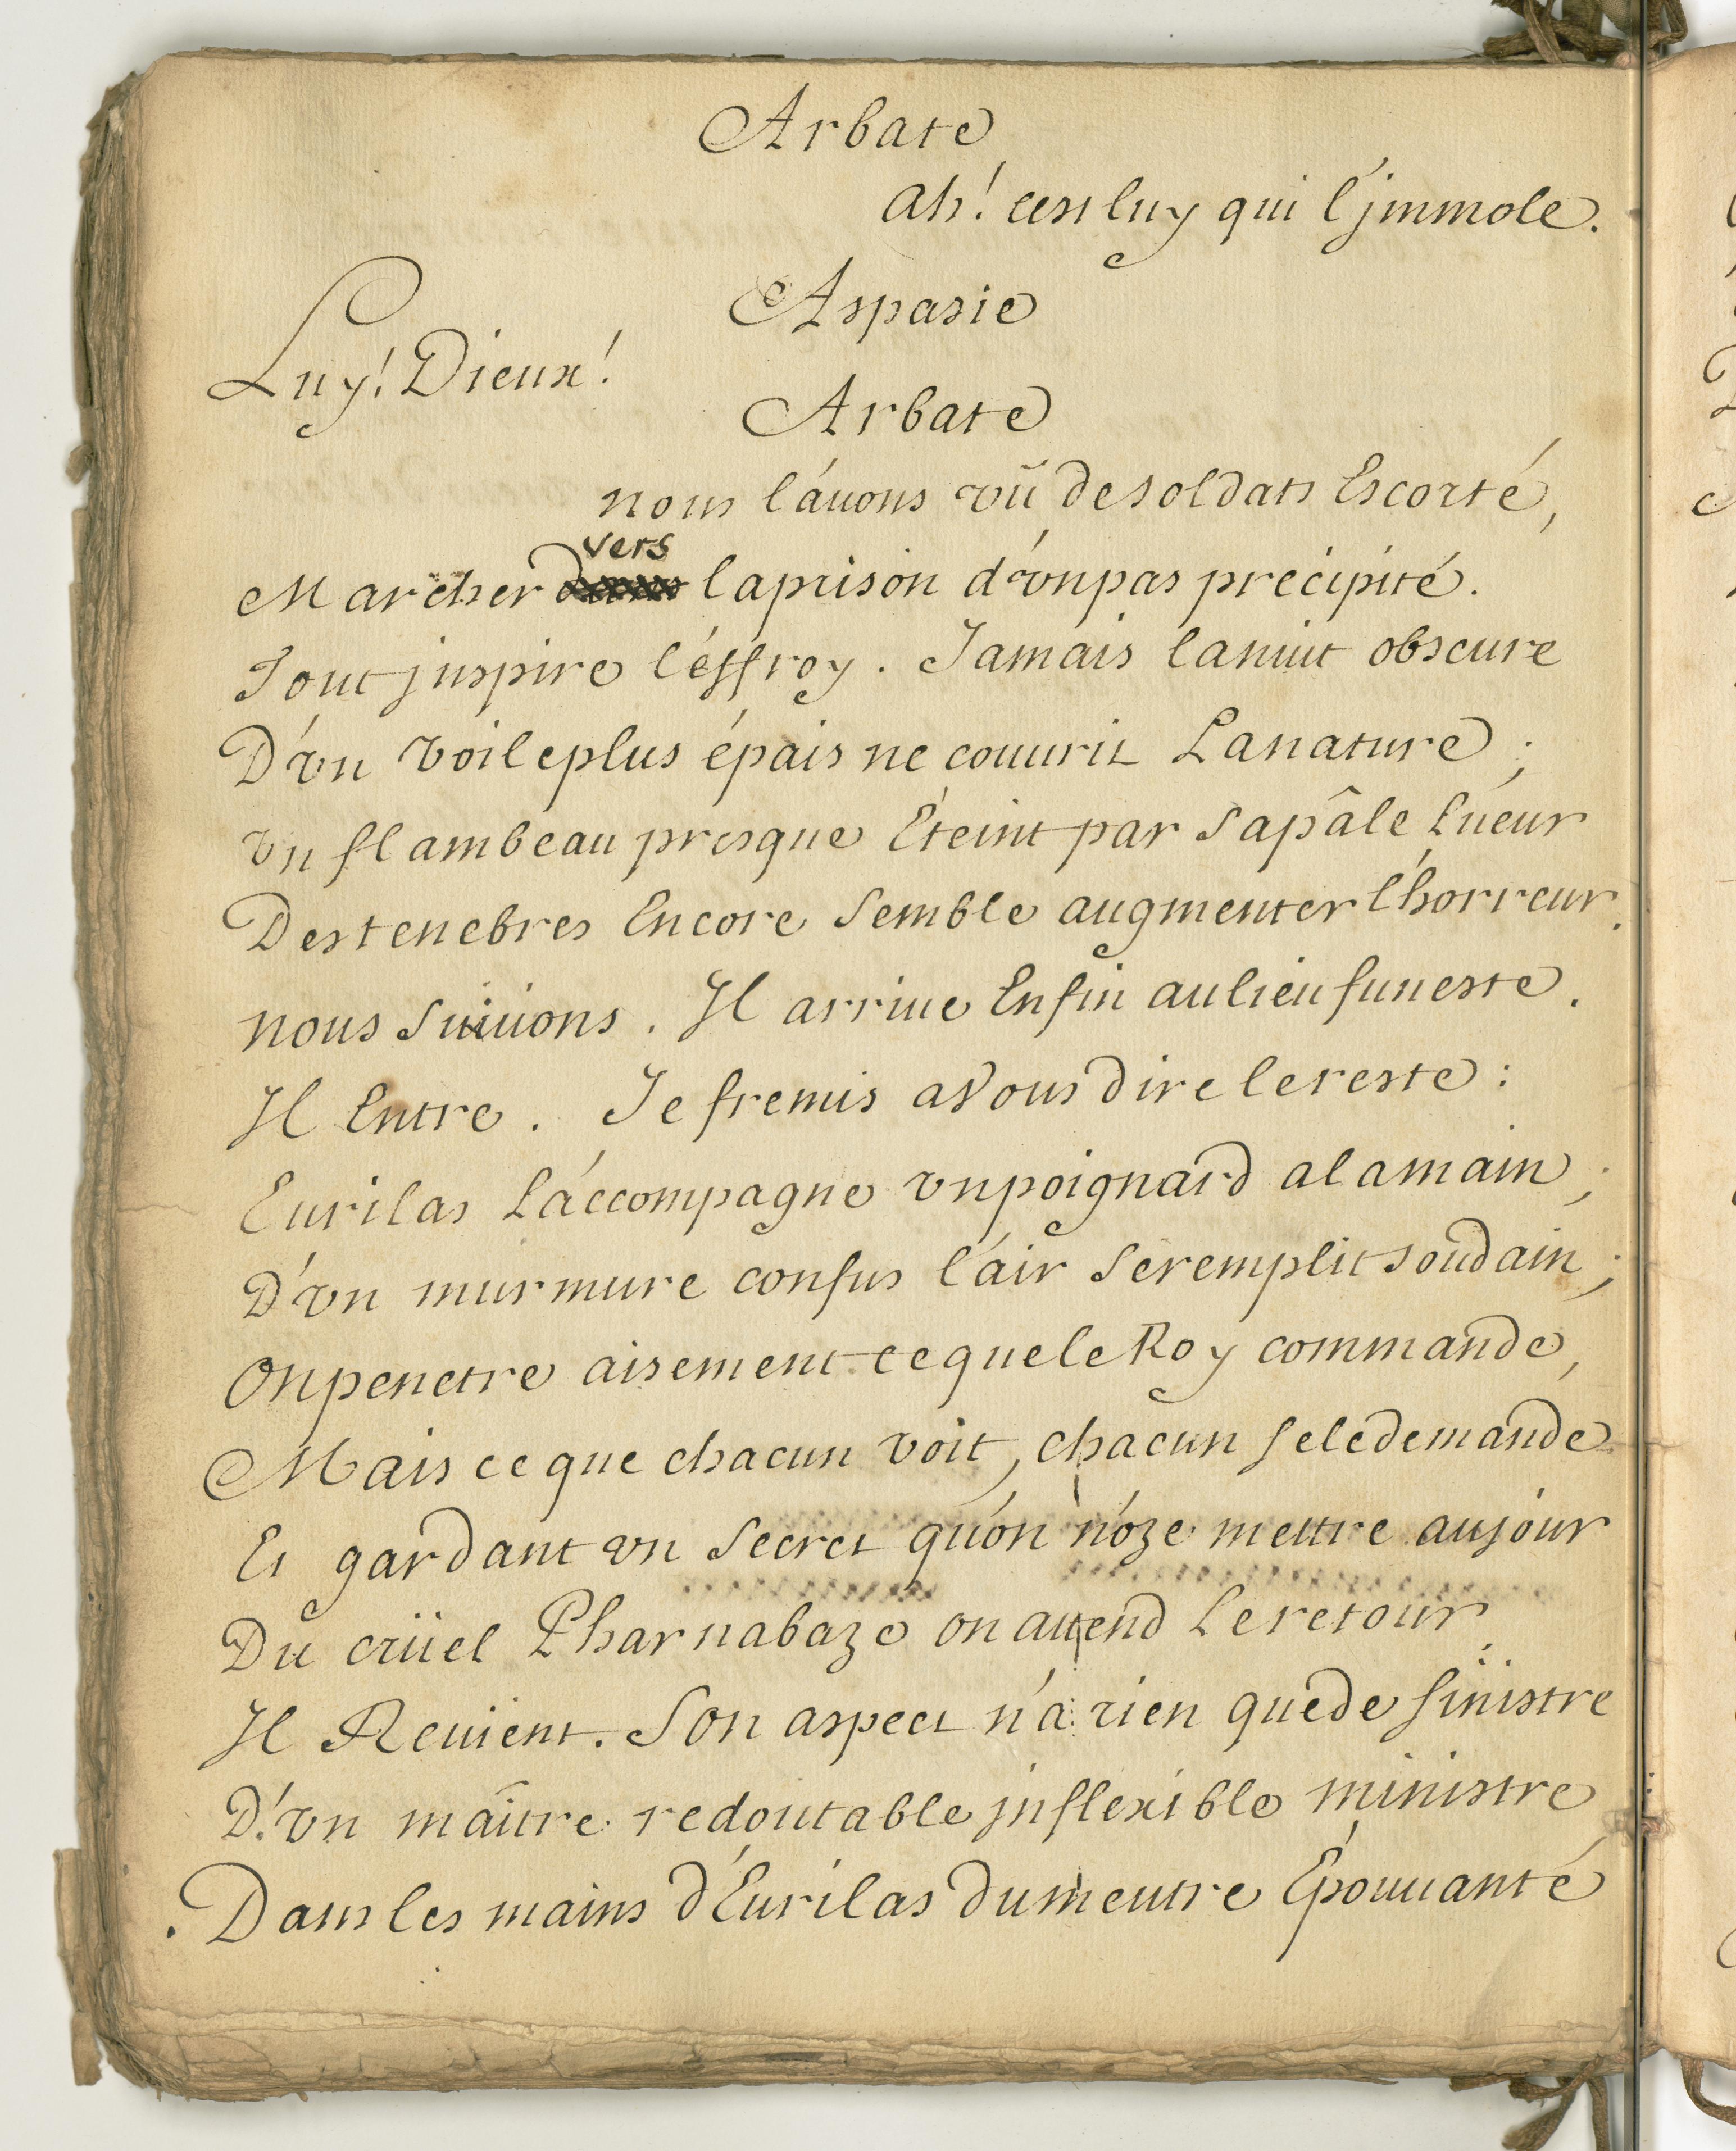 Arbate
Ah! cest luy qui l'jmmole.
Aspasie
Luy! Dieux!
Arbate
nous l'auons vû de soldats Escorté,
vers
Marcher la prison d'vn pas précipité.
Tout jnspire l'éffroy. Jamais la nuit obscure
D'vn voile plus épais ne couurit La nature;
vn flambeau presque Éteint par sa pâle Lueur
Des tenebres Encore semble augmenter l'horreur.
nous suiuions. Il arriue Enfin au lieu funeste.
Il Entre. Je fremis a Vous dire le reste:
Eurilas L'accompagne vn poignard a la main;
D'vn murmure confus l'air se remplit soudain;
On penetre aisement ce que le Roy commande,
Mais ce que chacun voit, chacun se le demande
Et gardant vn secret qu'on n'oze mettre au jour
Du crüel Pharnabaze on attend Le retour
Il Reuient. Son aspect n'a rien que de sinistre
D'vn maître redoutable jnflexible ministre
Dans les mains d'Eurilas du meutre Épouuanté